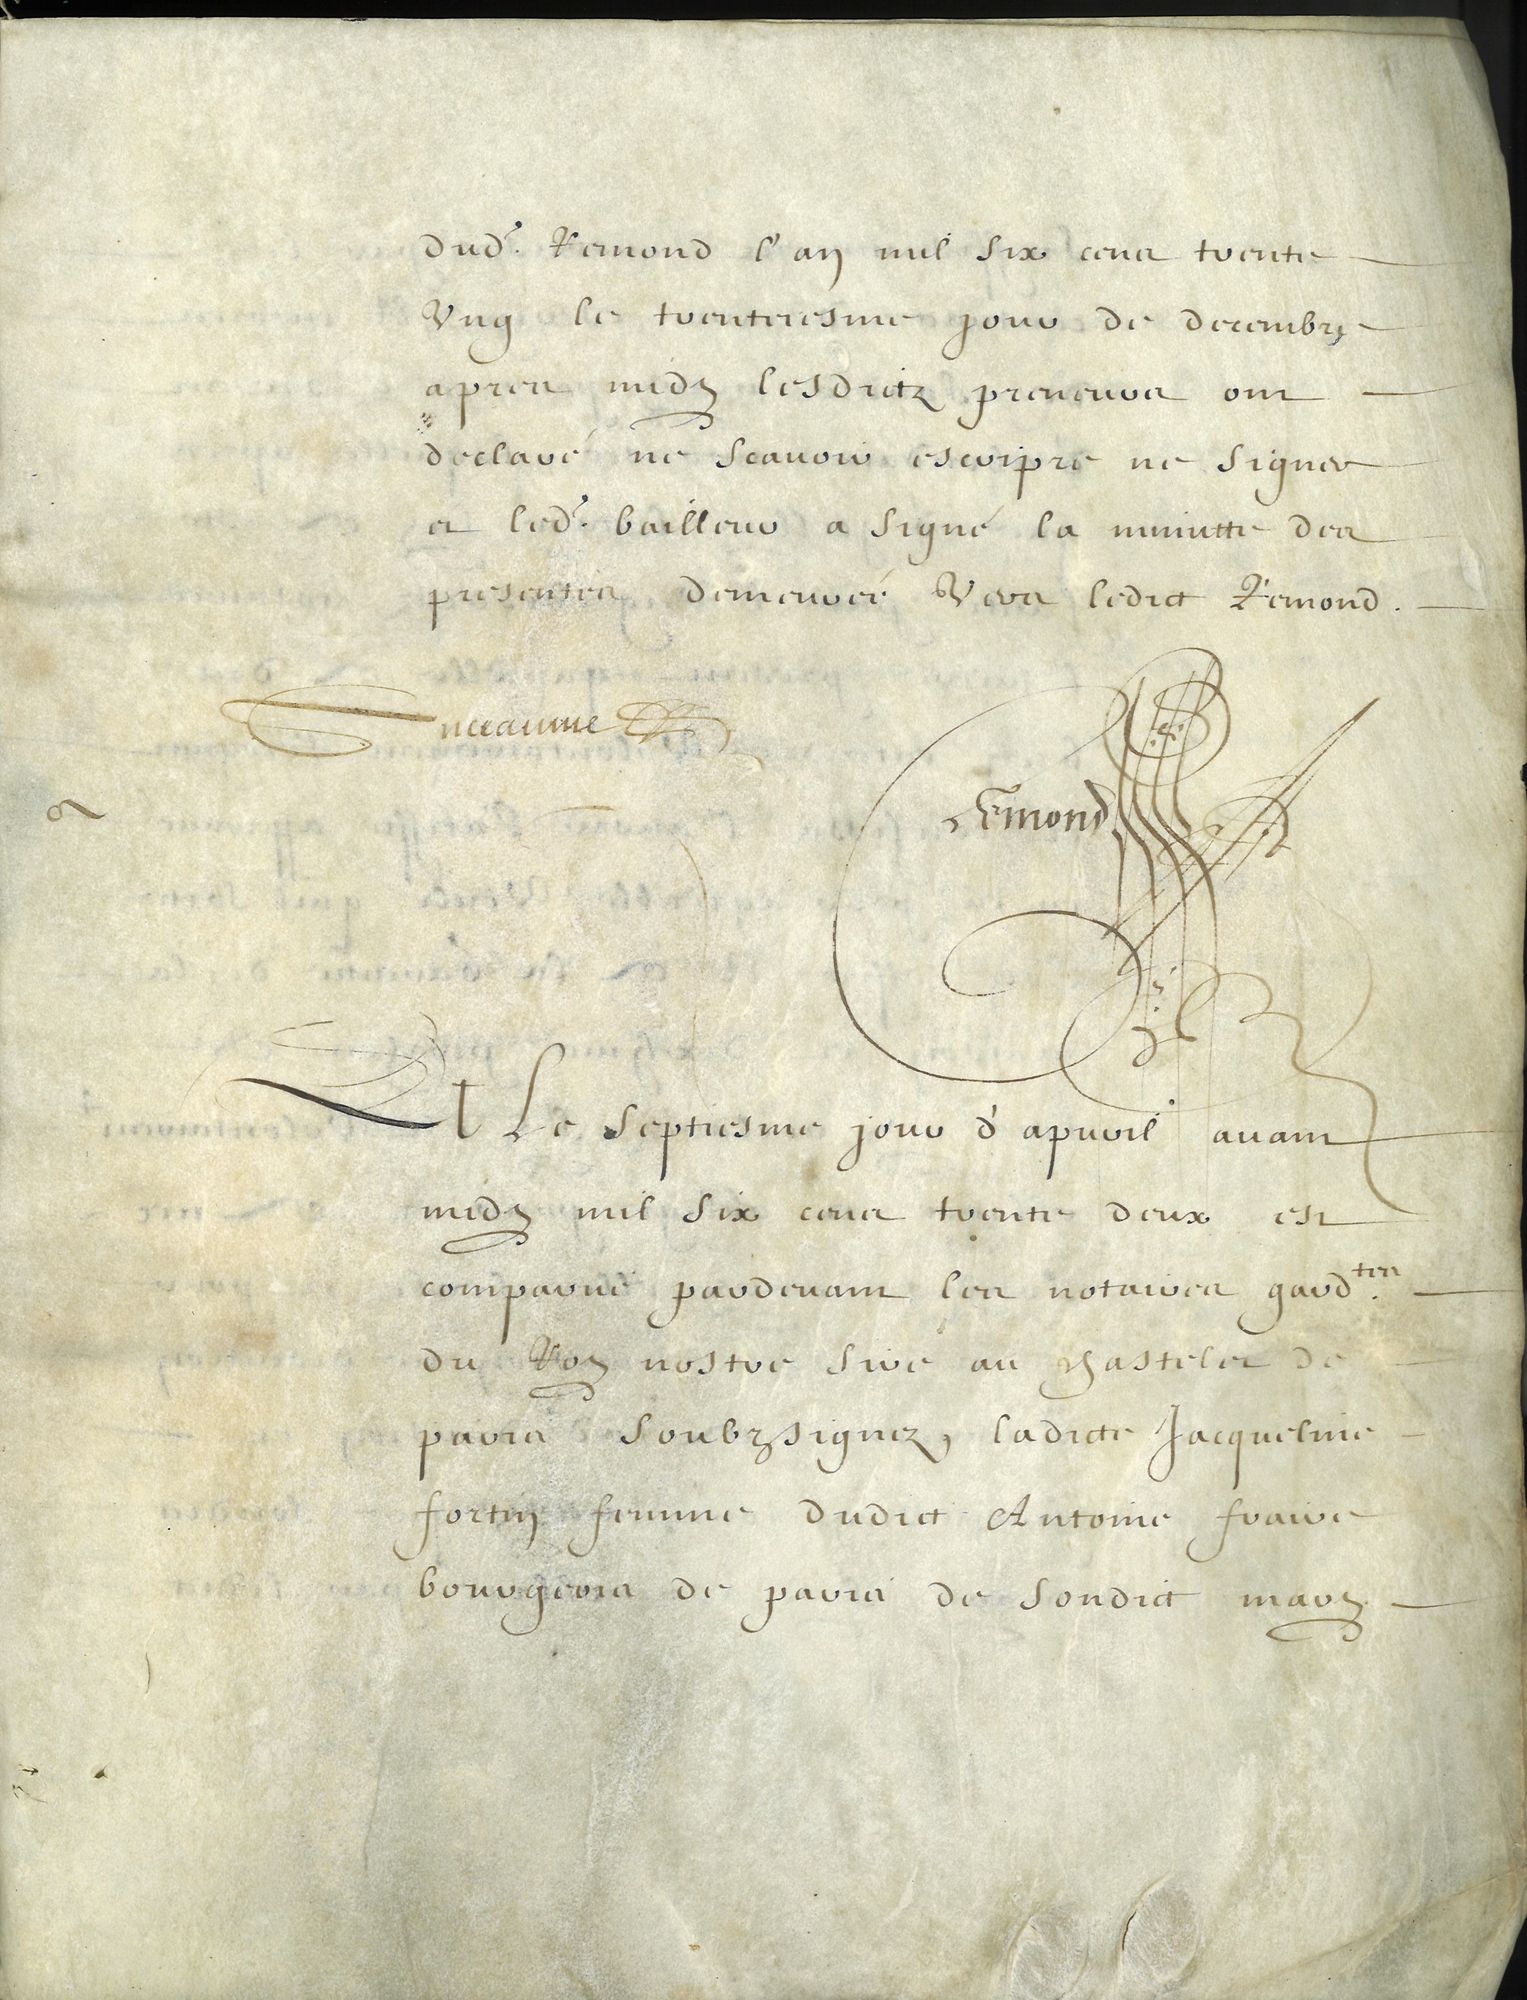 dud.t Remond l'an mil six cens trente
Ung le trentiesme jour de decembre
apres midy lesdictz preneurs ont
declaré ne scavoir escripre ne signer
et led.t bailleur a signé la minutte des
presentes demeuree Vers ledict Remond.
Remond
Et Le septiesme jour d'apvril avant
midy mil six cens trente deux est
comparue pardevant les notaires gard.tes
du Roy nostre sire au chastelet de
paris soubzsignez, ladicte Jacqueline
fortin femme dudict Antoine fraire
bourgeois de paris de sondict mary